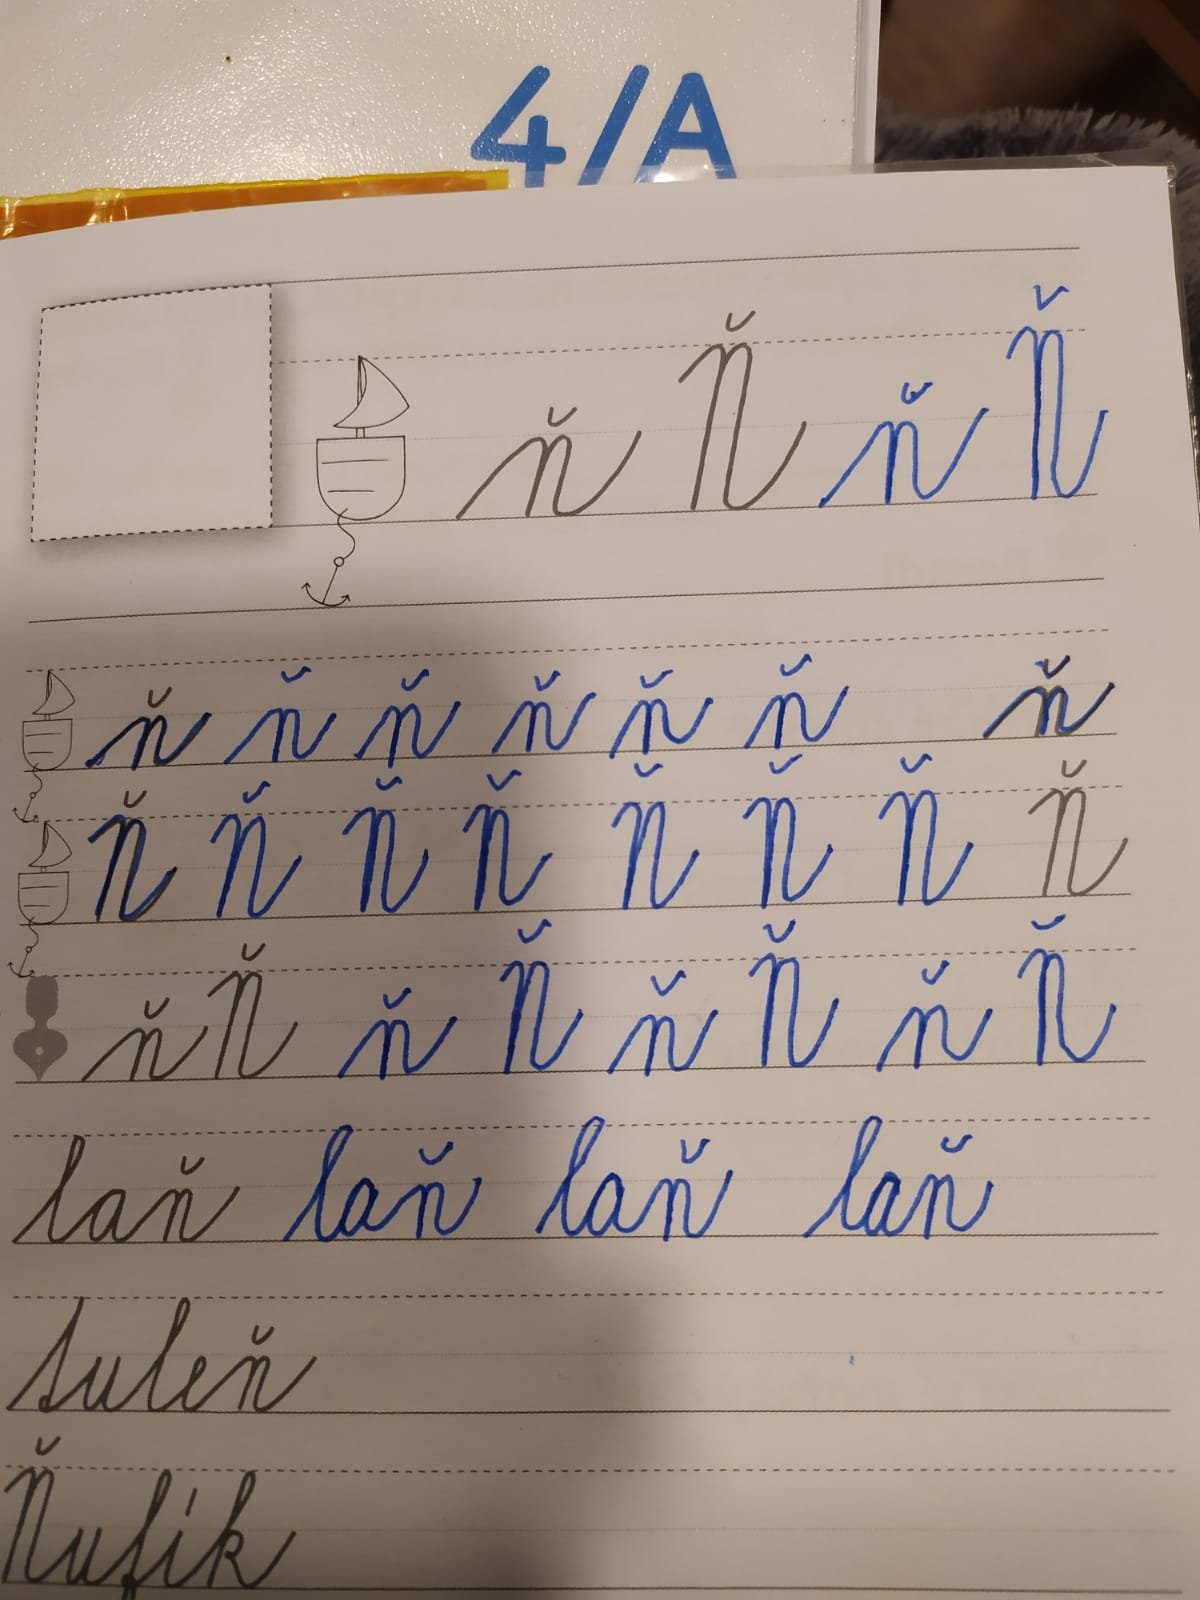 4/A
ň Ň ň Ň
ň ň ň ň ň ň ň
Ň Ň Ň Ň Ň Ň Ň Ň
ň Ň ň Ň ň Ň ň Ň
laň laň laň laň
tuleň
Ňufík